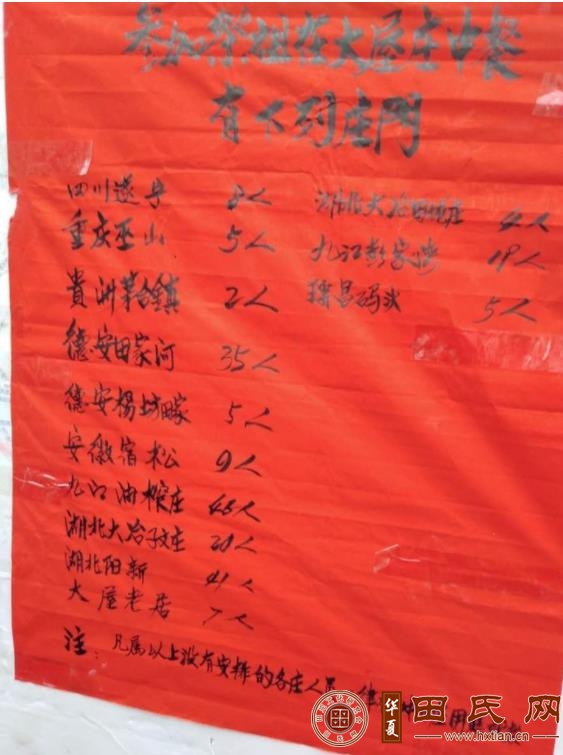 参加祭祖在大屋庄中餐
有下列庄门
四川遂宁 8人
重庆巫山 5人
贵洲茅台鎮 2人
德安田家河 35人
德安楊坊畈家 5人
安徽宿松 9人
九江油榨庄 48人
湖北大冶子文庄 20人
湖北阳新 41人
大屋老居 7人
湖北大冶 庄 4人
九江彭家湾 19人
瑞昌码头 5人
注：凡属以上没有安排的各庄人员
华夏
田氏网
www.hxtian.cn